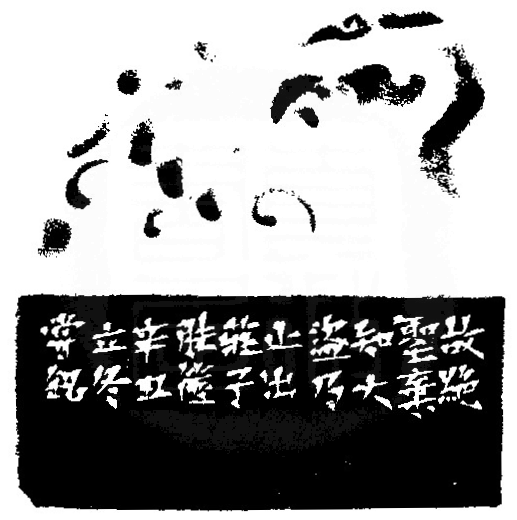 故絶
聖棄
知大
盜乃
止出
莊子
胠篋
辛丑
立冬
常